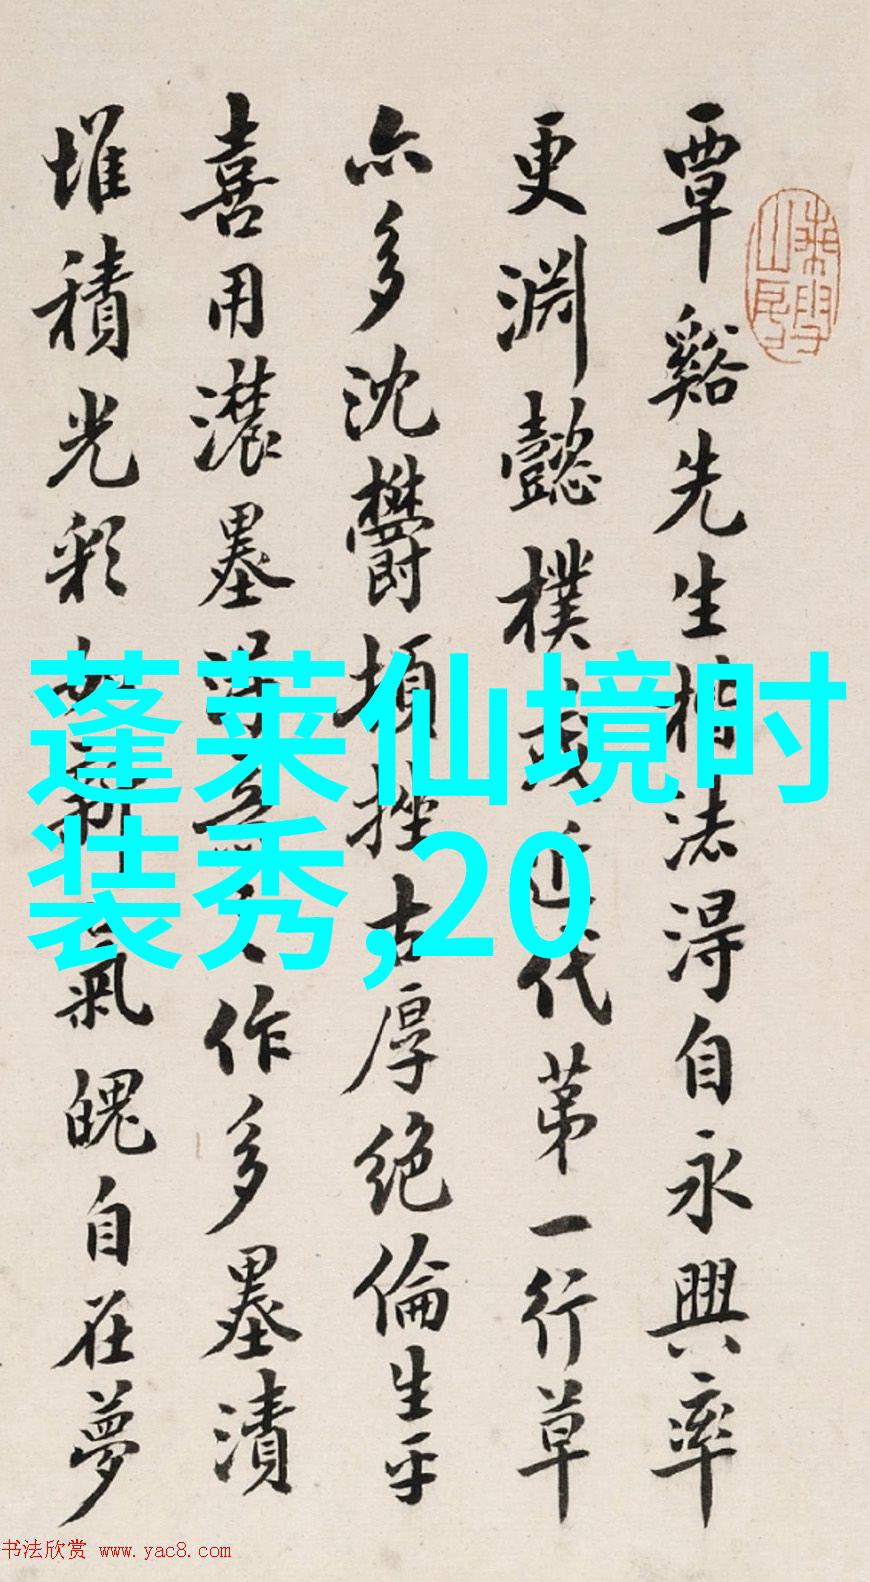 覃谿先生楷法得自永興率
更淵懿樸茂近代第一行草
亦多沈鬱頓挫古厚絶倫生平
喜用濃墨作多墨漬
堆積光彩氣魄自在夢
蓬莱仙境时
装秀,20
书法欣赏 www.yac8.com